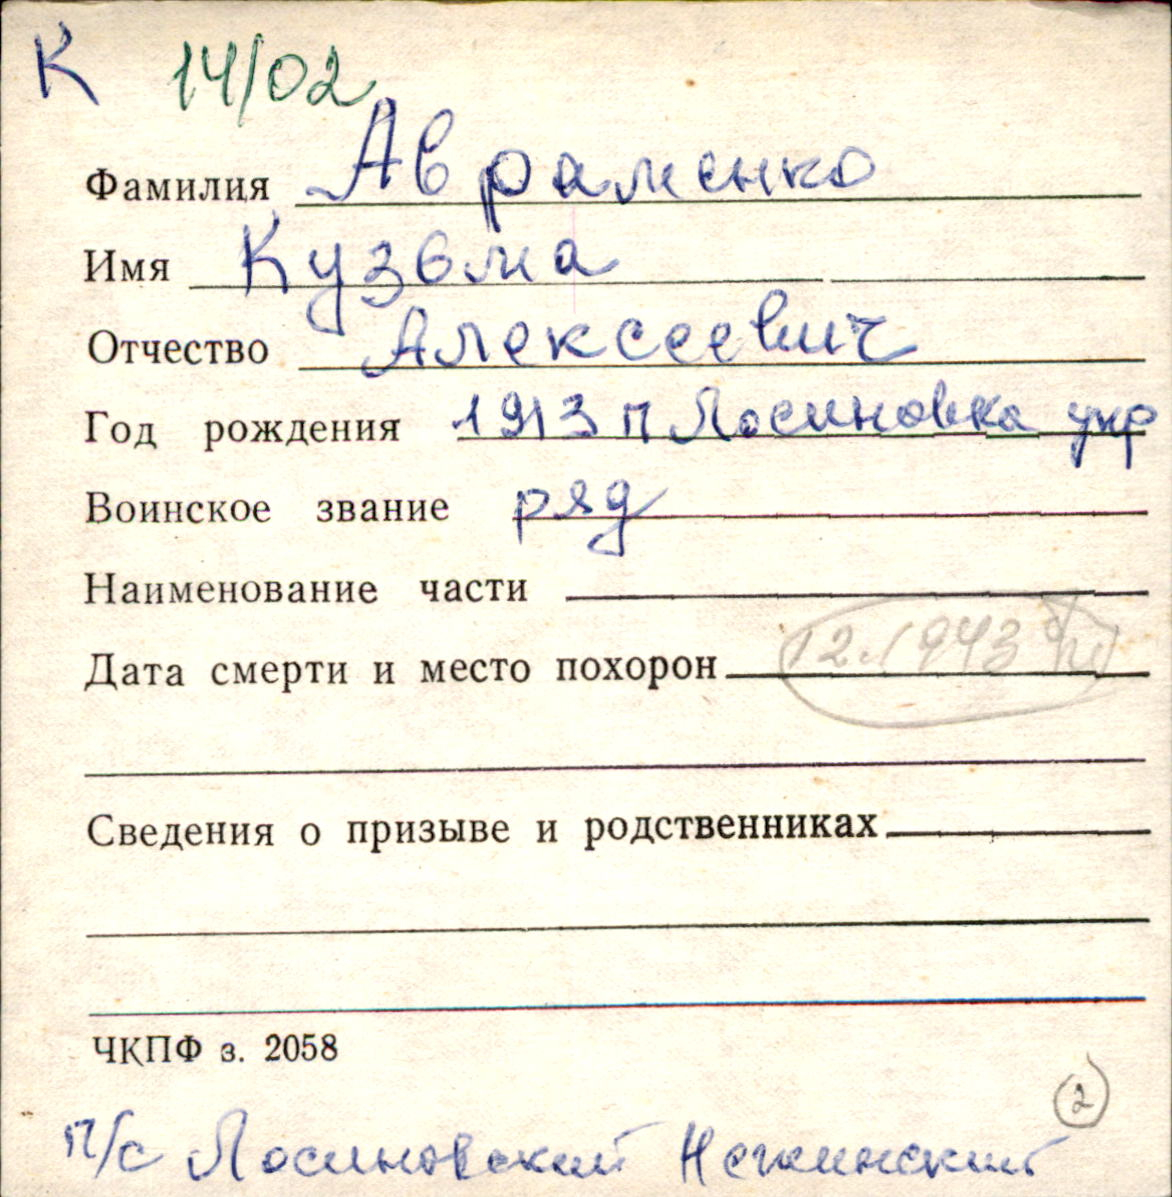 К 14/02
Фамилия Авраменко
Имя Кузьма
Отчество Алексеевич
Год рождения 1913 п Лосиновка укр
Воинское звание ряд
Наименование части
Дата смерти и место похорон 12.1943 б/п
Сведения о призыве и родственниках
ЧКПФ з. 2058
2
п/с Лосиновский Нежинский